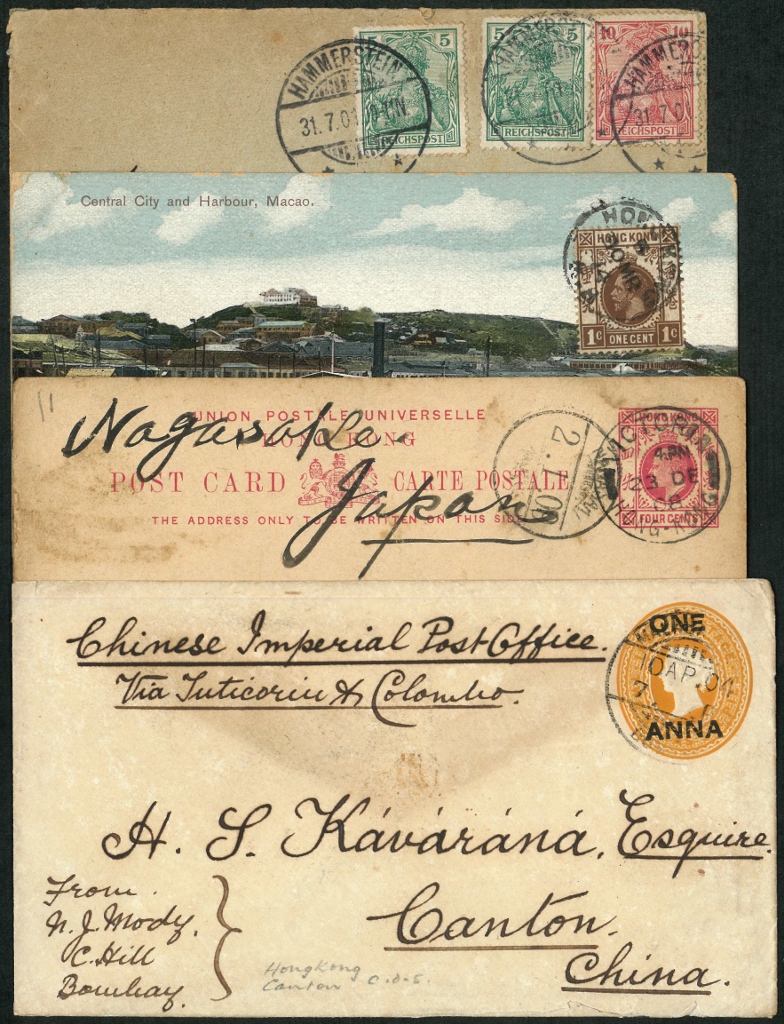 5
5 5
10 10
HAMMERSTEIN
31.7.01
31.7.0
REICHSPOST
REICHSPOST
REICHSPOST
Central City and Harbour, Macao.
HONG KONG
1c ONE CENT 1c
11
UNION POSTALE UNIVERSELLE
HONG KONG
POST CARD CARTE POSTALE
THE ADDRESS ONLY TO BE WRITTEN ON THIS SIDE
Nagasaki.
Japan
2.1.06
HONG KONG
FOUR CENTS
VICTORIA
4 PM
23 DE
HONG-KONG
Chinese Imperial Post Office.
Via Tuticorin & Colombo.
ONE
ANNA
10 AP. 04
7
H. S. Kávâráná, Esquire.
Canton.
China.
From.
N. J. Mody.
C. Hill
Bombay.
HongKong
Canton c.d.s.